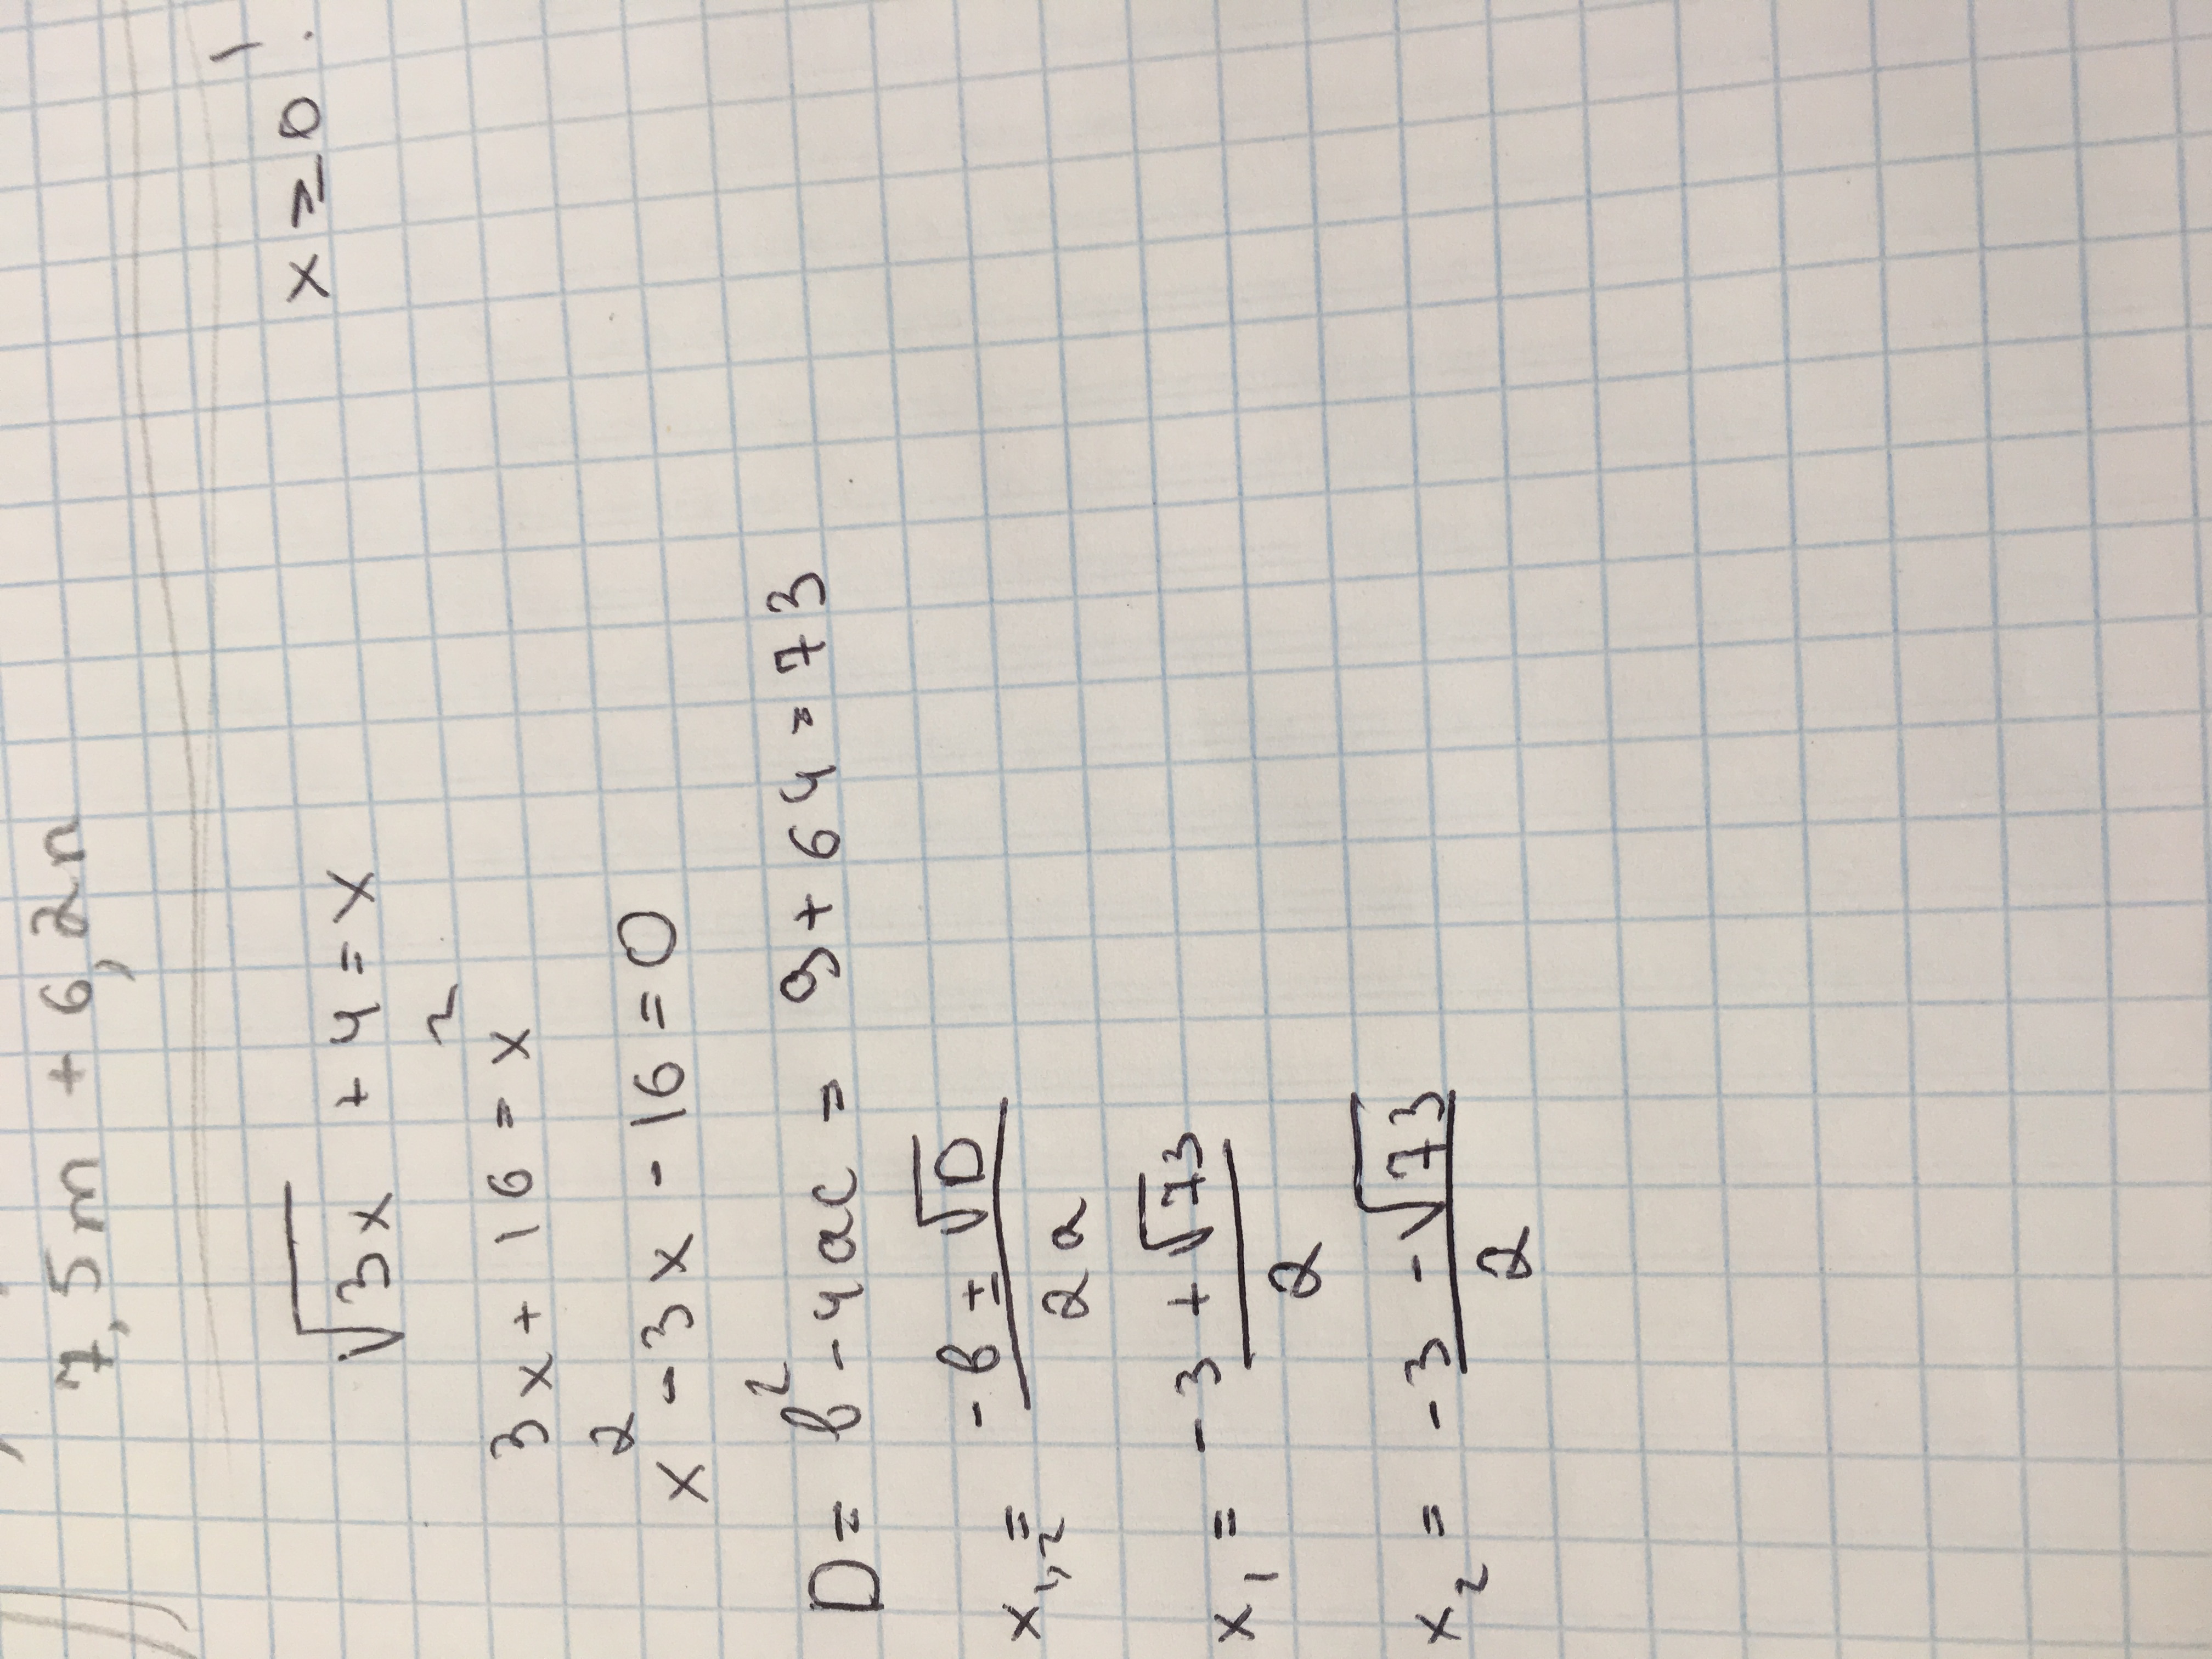 7,5m + 6,2n
x ≥ 0
√3x + 4 = x
3x + 16 = x²
x² - 3x - 16 = 0
D = b² - 4ac = 9 + 64 = 73
x₁,₂ = (-b ± √D) / 2a
x₁ = (-3 + √73) / 2
x₂ = (-3 - √73) / 2